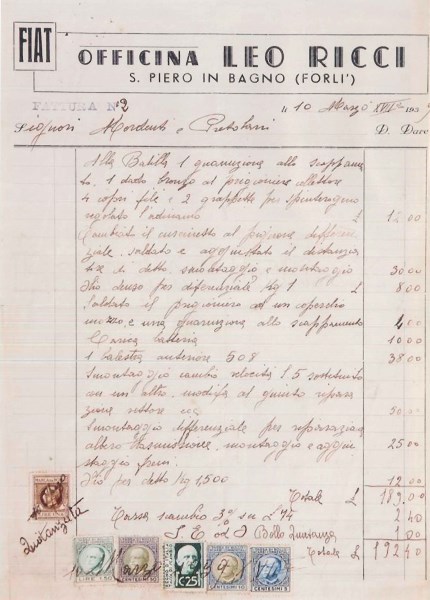 FIAT
OFFICINA LEO RICCI
S. PIERO IN BAGNO (FORLI')
FATTURA N° 2
li 10 Marzo XVII° 193
Signori Morduti e D. Dare
Alla Balilla 1 guarnizione allo scappamen
to, 1 dado bronzo al prigioniero collettore
4 copri file e 2 per
regolato £ 12 00
Cambiato il cuscinetto al pignone differen
ziale, soldato e aggiustato il distanza
detto, smontaggio e montaggio 30 00
Olio denso per diferenziale Kg 1 £ 8 00
Soldato il prigioniero ad un coperchio
mozzo, e una guarnizione allo scappamento 4 00
Carica batteria 10 00
1 balestra anteriore 508 38 00
Smontaggio cambio velocità 15 sostituito
con un altro, modifca al giunto ripara
zione 50 00
Smontaggio differenziale per reparazione
albero trasmissione, montaggio e aggiu
staggio freni 25 00
Olio per detto Kg 1,500 12 00
Totale £ 189.00
Tassa scambio 3% su £ 74 2 40
Bollo Quietanza 1 00
Totale £ 192 40
Quietanzata
LIRE 1.50
CENTESIMI 50
C.25
CENTESIMI 10
CENTESIMI 5